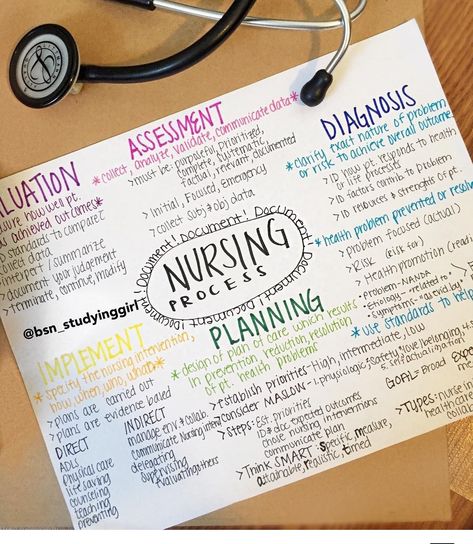 ASSESSMENT
*collect, analyze, validate, communicate data*
> must be: purposeful, prioritized,
complete, systematic,
factual, relevant, documented
> Initial, Focused, Emergency
> collect subj & obj data
DIAGNOSIS
*clarify exact nature of problem
or risk to achieve overall outcome
> ID how pt responds to health
or life processes
> ID factors contrib to problem
> ID resources & strengths of pt.
*health problem prevented or
> problem focused (actual)
> Risk (risk for)
> Health promotion
Problem-NANDA
Etiology-"related to"
Symptoms-"as evid by"
*use standards to
Document! Document! Document! Document! Document! Document!
NURSING
PROCESS
LUATION
how well pt.
achieved outcomes*
ID standards to compare
collect data
interpret/summarize
> document your judgement
> terminate, continue, modify
@bsn_studyinggirl
IMPLEMENT
*specify the nursing intervention,
how, when, who, what*
> plans are carried out
> plans are evidence based
DIRECT
ADLs
physical care
life saving
counseling
teaching
preventing
INDIRECT
manage env & collab.
communicate nursing interv
delegating
supervising
evaluating others
PLANNING
*design of plan of care which results
in prevention, reduction, resolution,
of pt. health problems
> establish priorities-High, intermediate, low
consider MASLOW-1. physiologic, 2. safety, 3. love/belonging,
5. self actualization
> Steps: Est priorities
ID & doc expected outcomes
chose nursing interventions
communicate plan
> Think SMART: Specific, measure,
attainable, realistic, timed
GOAL= Broad
> TYPES: nurse
health care
collab